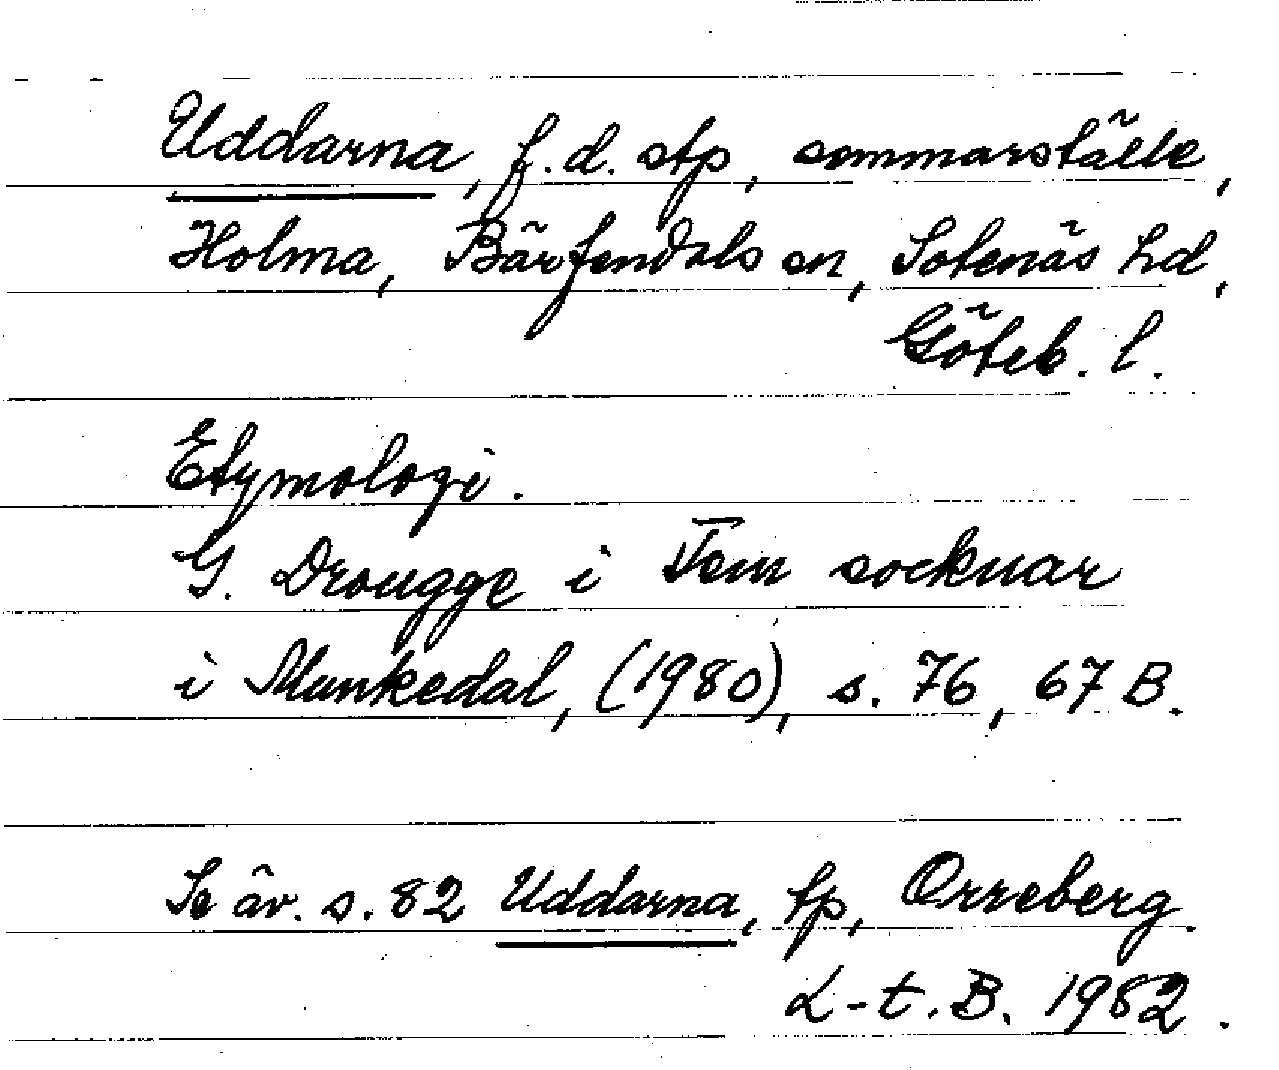 Uddarna, f.d. stp, sommarställe,
Holma, Bärfendals sn, Sotenäs hd,
Göteb. l.
Etymologi.
G. Drougge i Fem socknar
i Munkedal, (1980), s. 76, 67 B.
Se äv. s. 82 Uddarna, tp, Orreberg.
L-t. B. 1982.